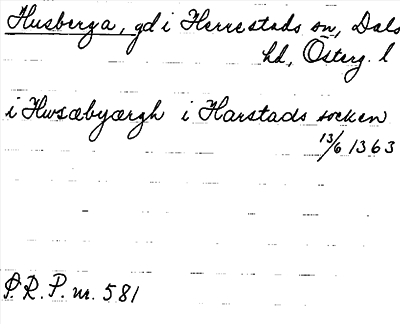 Husberga, gd i Herrestads sn, Dals
hd, Österg. l
i Hwsæbyærgh i Harstads socken
13/6 1363
P. R. P. nr. 581